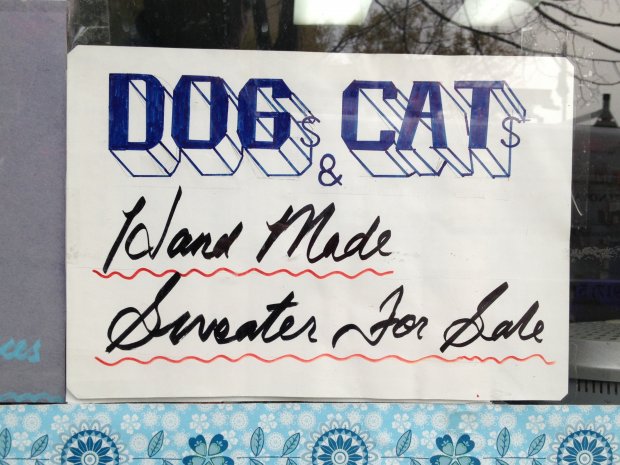 DOGs & CATs
Hand Made
Sweater For Sale
ces